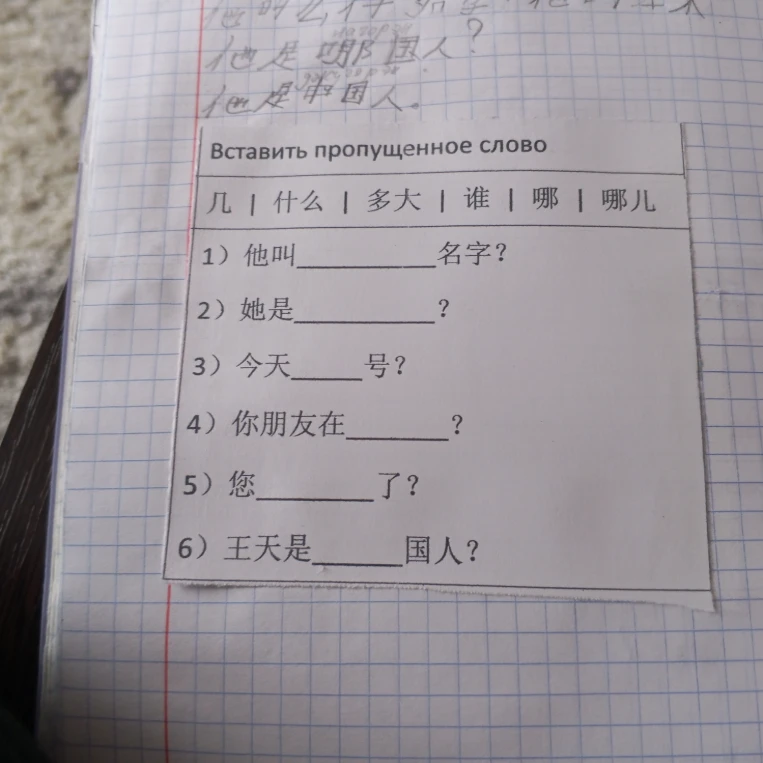 他是哪国人？
他是中国人。
Вставить пропущенное слово
几 | 什么 | 多大 | 谁 | 哪 | 哪儿
1）他叫__________名字？
2）她是__________？
3）今天_____号？
4）你朋友在_______？
5）您________了？
6）王天是______国人？